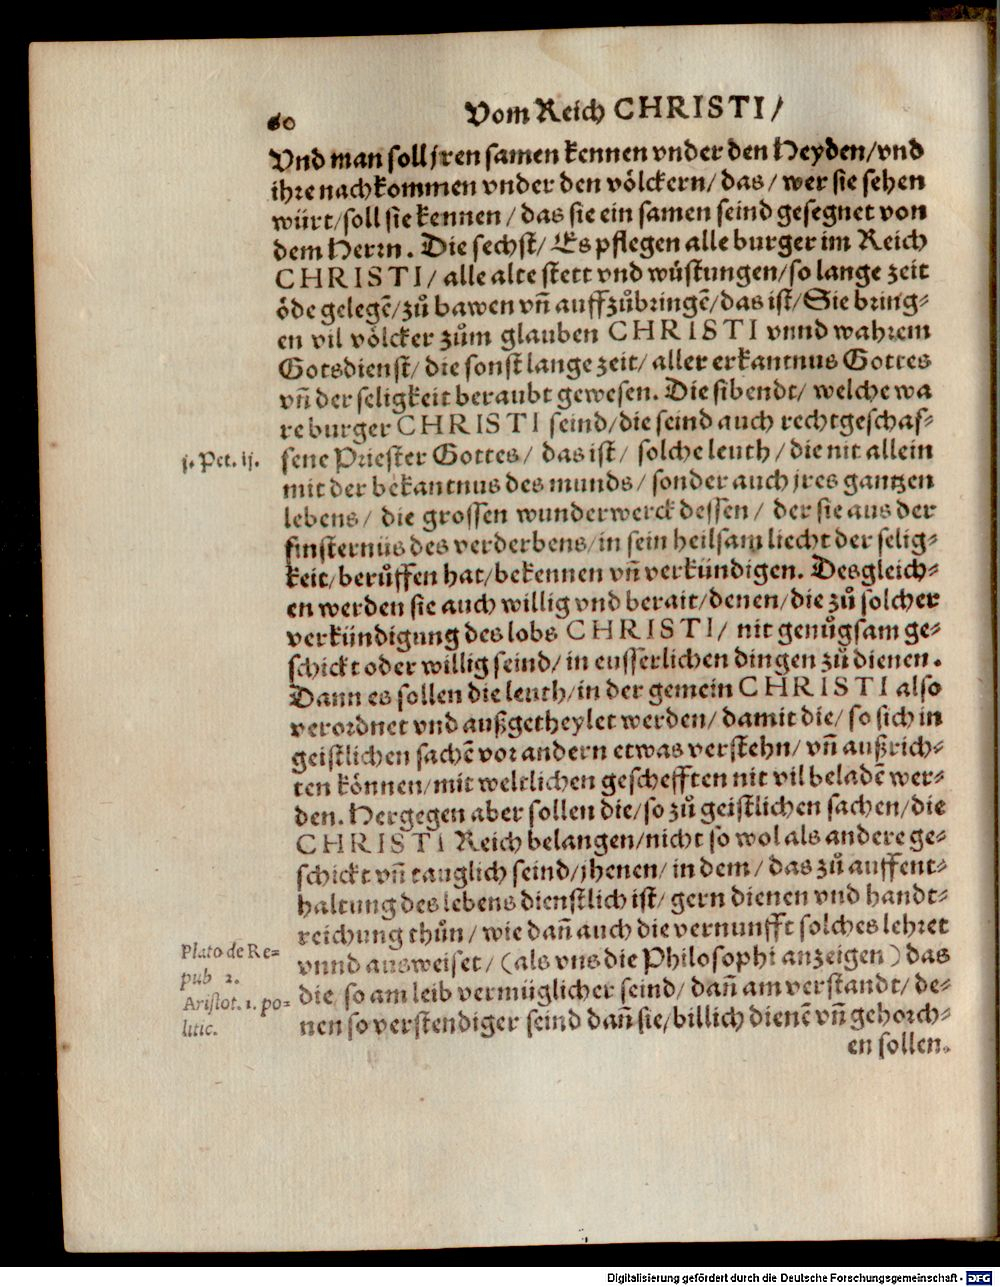 60
Vom Reich CHRISTI/
Vnd man soll jren samen kennen vnder den Heyden/vnd
ihre nachkommen vnder den völckern/ das/ wer sie sehen
würt/soll sie kennen/ das sie ein samen seind gesegnet von
dem Herrn. Die sechst/ Es pflegen alle burger im Reich
CHRISTI/ alle alte stett vnd wůstungen/so lange zeit
öde gelegẽ/zů bawen vñ auffzůbringẽ/das ist/Sie bring-
en vil völcker zům glauben CHRISTI vnnd wahrem
Gotsdienst/ die sonst lange zeit/ aller erkantnus Gottes
vñ der seligkeit beraubt gewesen. Die sibendt/ welche wa
re burger CHRISTI seind/die seind auch rechtgeschaf-
j. Pet. ij.
sene Priester Gottes/ das ist/ solche leuth/ die nit allein
mit der bekantnus des munds/ sonder auch jres gantzen
lebens/ die grossen wunderwerck dessen/ der sie aus der
finsternüs des verderbens/in sein heilsam liecht der selig-
keit/berůffen hat/bekennen vñ verkündigen. Desgleich-
en werden sie auch willig vnd berait/denen/die zů solcher
verkündigung des lobs CHRISTI/ nit genůgsam ge-
schickt oder willig seind/in eusserlichen dingen zů dienen.
Dann es sollen die leuth/in der gemein CHRISTI also
verordnet vnd außgetheylet werden/ damit die/ so sich in
geistlichen sachẽ vor andern etwas verstehn/ vñ außrich-
ten können/mit weltlichen geschefften nit vil beladẽ wer-
den. Hergegen aber sollen die/so zů geistlichen sachen/die
CHRISTI Reich belangen/nicht so wol als andere ge-
schickt vñ tauglich seind/jhenen/ in dem/ das zů auffent-
haltung des lebens dienstlich ist/ gern dienen vnd handt-
reichung thůn/ wie dañ auch die vernunfft solches lehret
Plato de Re-
pub 2.
Aristot. 1. po-
litic.
vnnd ausweiset/ (als vns die Philosophi anzeigen) das
die/ so am leib vermüglicher seind/ dañ am verstandt/ de-
nen so verstendiger seind dañ sie/billich dienẽ vñ gehorch-
en sollen.
Digitalisierung gefördert durch die Deutsche Forschungsgemeinschaft - DFG